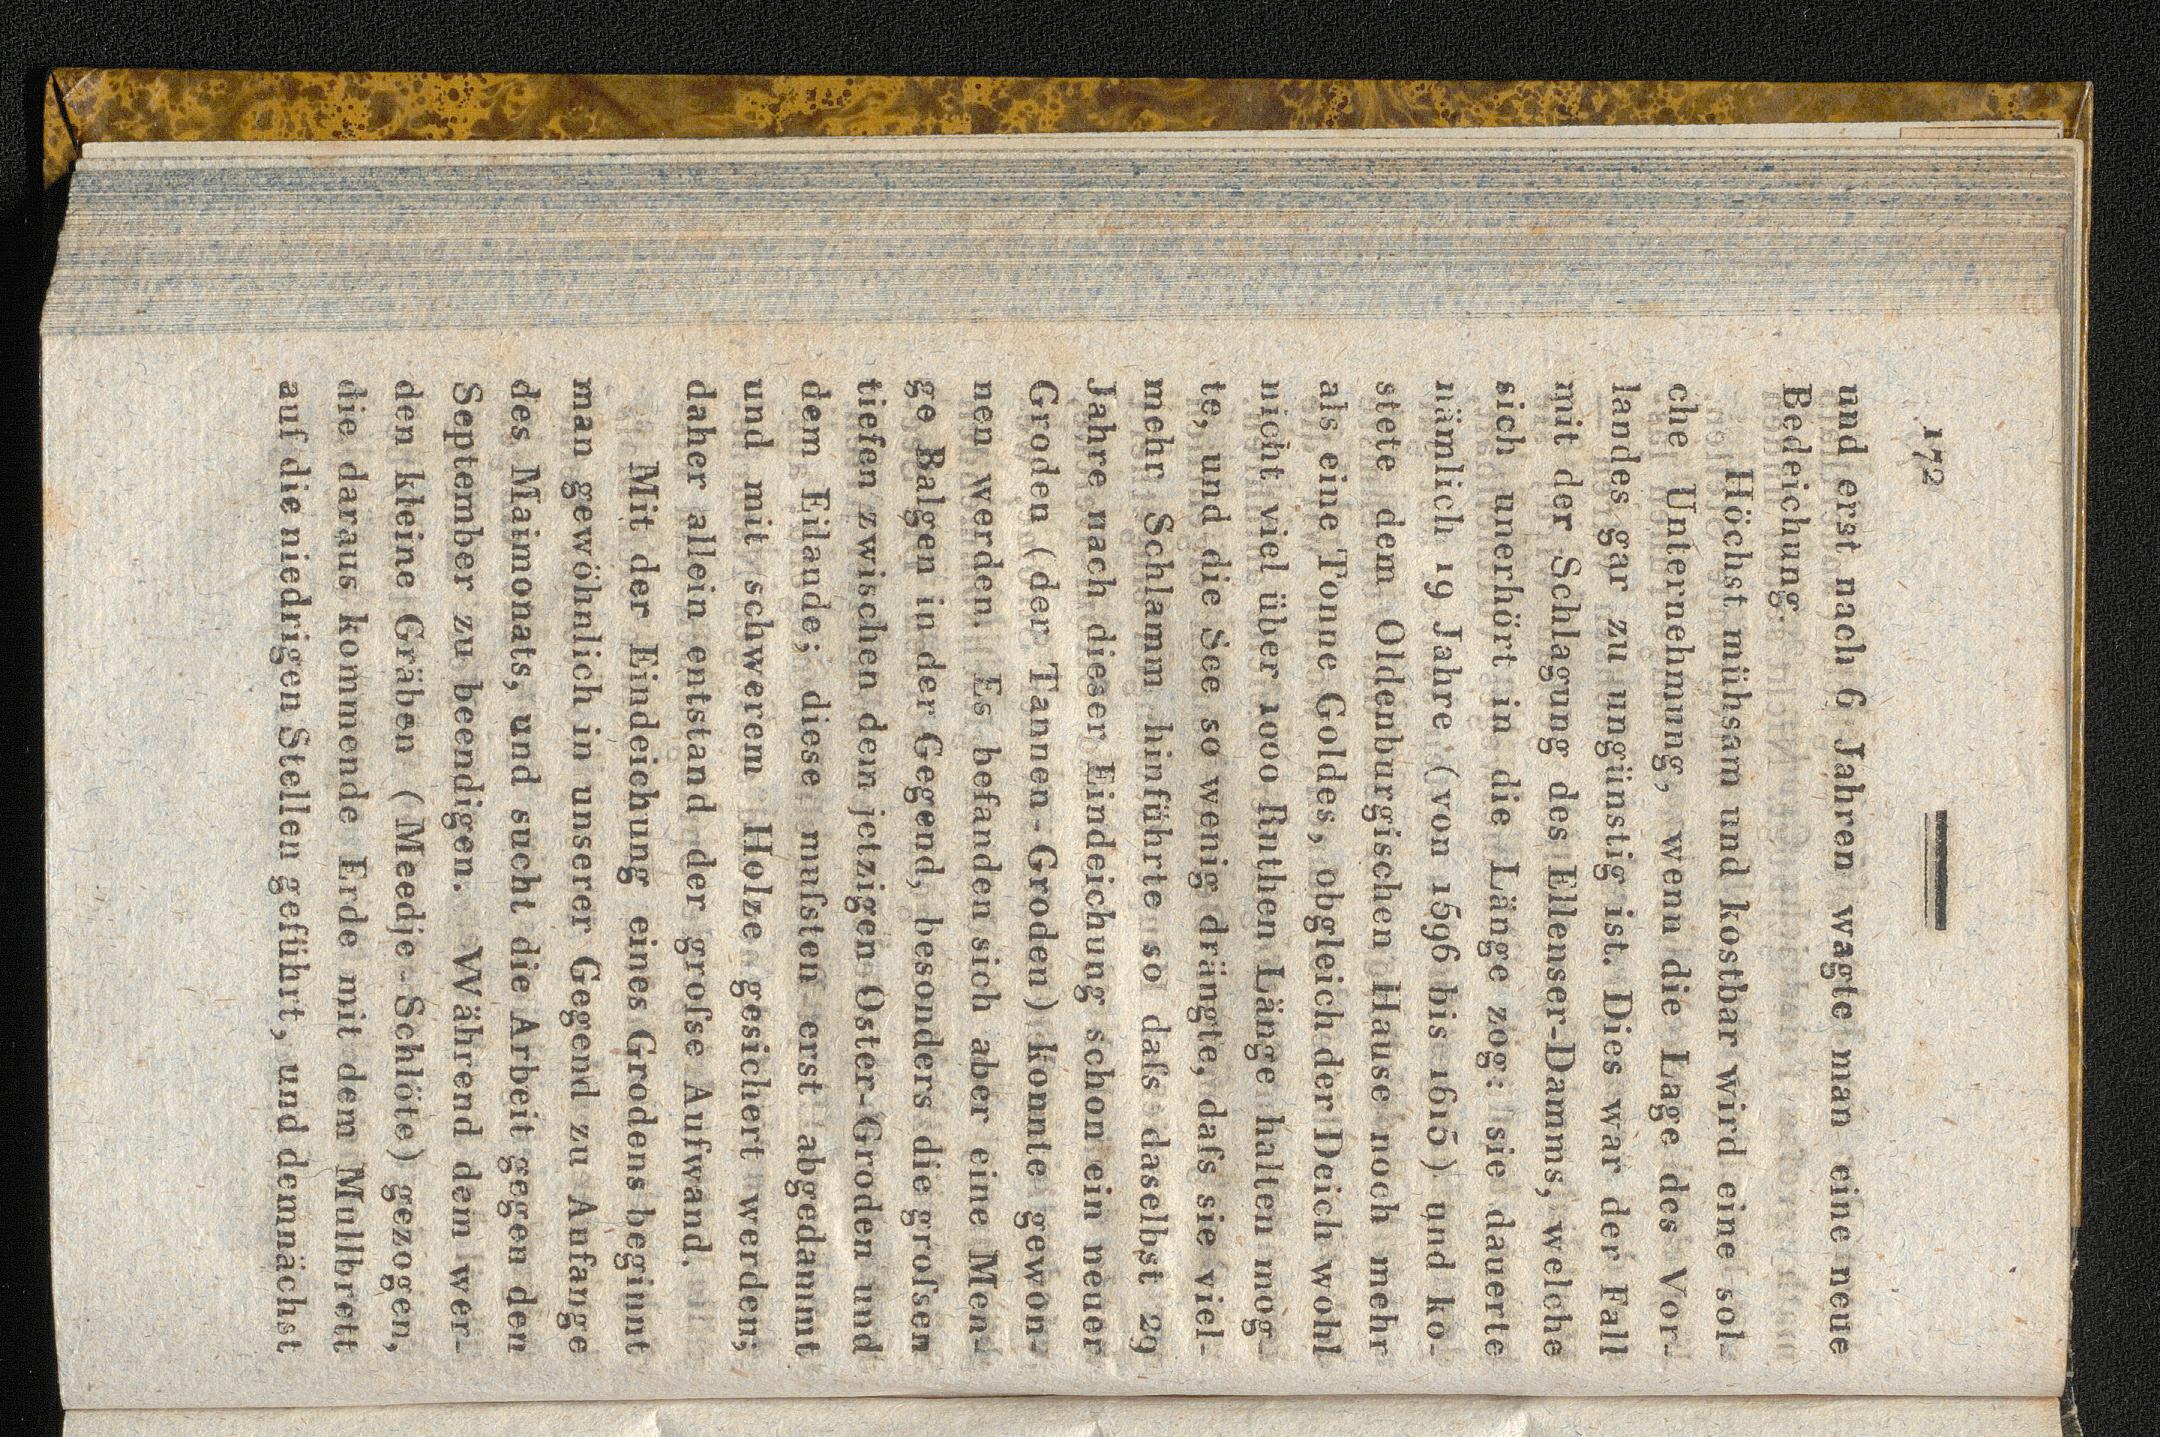 172
und erst nach 6 Jahren wagte man eine neue
Bedeichung.
Höchst mühsam und kostbar wird eine sol-
che Unternehmung, wenn die Lage des Vor-
landes gar zu ungünstig ist. Dies war der Fall
mit der Schlagung des Ellenser-Damms, welche
sich unerhört in die Länge zog: sie dauerte
nämlich 19 Jahre (von 1596 bis 1615) und ko-
stete dem Oldenburgischen Hause noch mehr
als eine Tonne Goldes, obgleich der Deich wohl
nicht viel über 1000 Ruthen Länge halten mog-
te, und die See so wenig drängte, daſs sie viel-
mehr Schlamm hinführte so daſs daselbst 29
Jahre nach dieser Eindeichung schon ein neuer
Groden (der Tannen-Groden) konnte gewon-
nen werden. Es befanden sich aber eine Men-
ge Balgen in der Gegend, besonders die groſsen
tiefen zwischen dem jetzigen Oster-Groden und
dem Eilande; diese muſsten erst abgedammt
und mit schwerem Holze gesichert werden;
daher allein entstand der groſse Aufwand.
Mit der Eindeichung eines Grodens beginnt
man gewöhnlich in unserer Gegend zu Anfange
des Maimonats, und sucht die Arbeit gegen den
September zu beendigen. Während dem wer-
den kleine Gräben (Meedje-Schlöte) gezogen,
die daraus kommende Erde mit dem Mullbrett
auf die niedrigen Stellen geführt, und demnächst